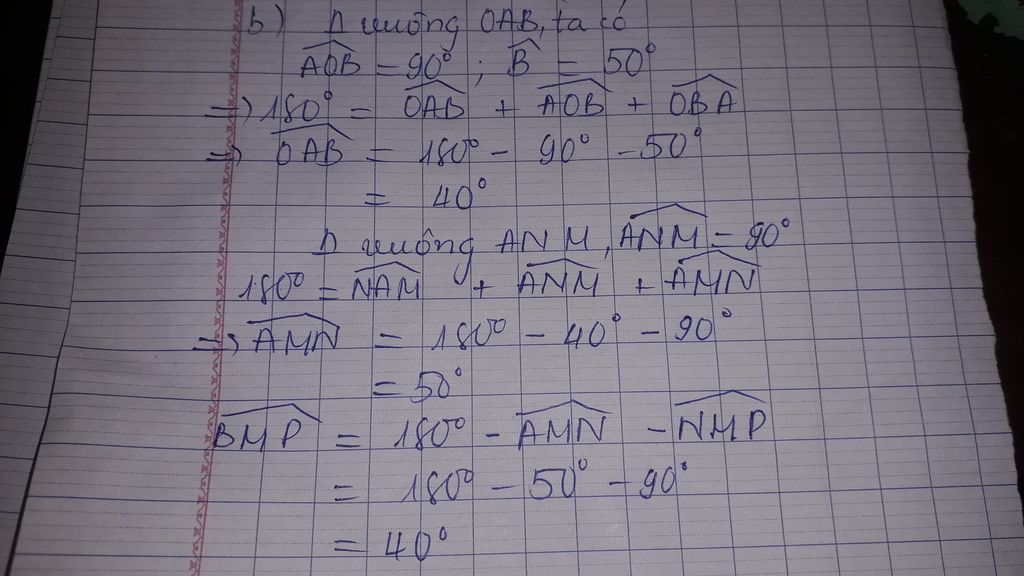 b) Δ vuông OAB, ta có
$\widehat{AOB}$ = 90° ; $\widehat{B}$ = 50°
=> 180° = $\widehat{OAB}$ + $\widehat{AOB}$ + $\widehat{OBA}$
=> $\widehat{OAB}$ = 180° - 90° - 50°
= 40°
Δ vuông ANM, $\widehat{ANM}$ = 90°
180° = $\widehat{NAM}$ + $\widehat{ANM}$ + $\widehat{AMN}$
=> $\widehat{AMN}$ = 180° - 40° - 90°
= 50°
$\widehat{BMP}$ = 180° - $\widehat{AMN}$ - $\widehat{NMP}$
= 180° - 50° - 90°
= 40°